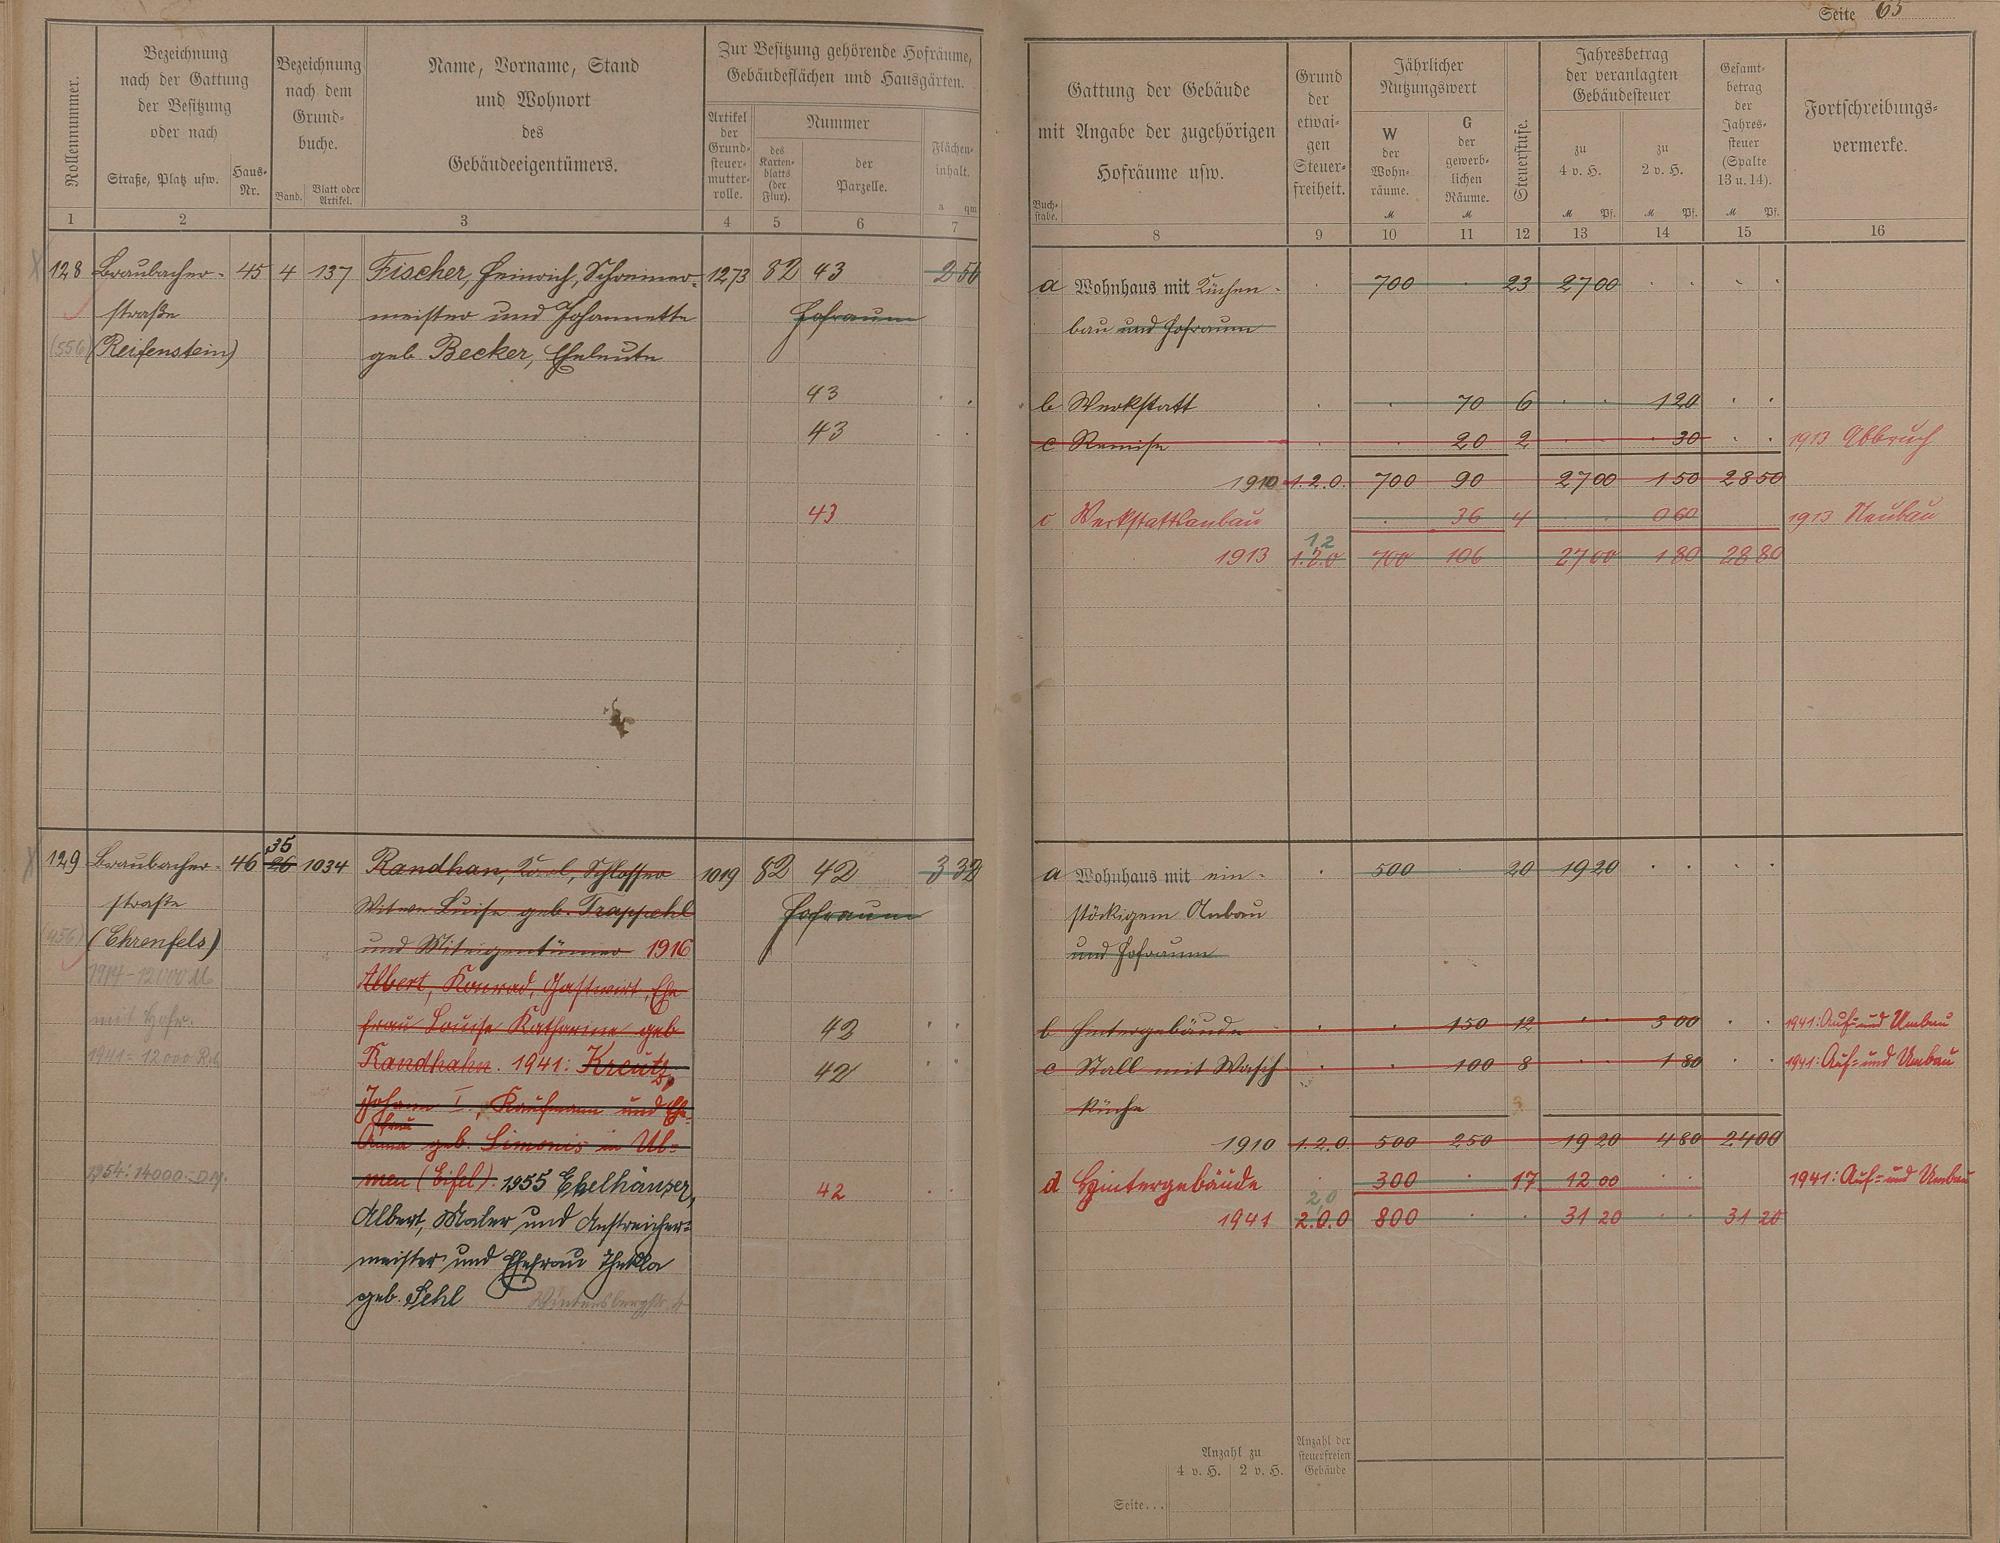 Seite 65
Rollennummer.
Bezeichnung
nach der Gattung
der Besitzung
oder nach
Straße, Platz usw.
Haus-
Nr.
Bezeichnung
nach dem
Grund-
buche.
Band.
Blatt oder
Artikel.
Name, Vorname, Stand
und Wohnort
des
Gebäudeeigentümers.
Zur Besitzung gehörende Hofräume,
Gebäudeflächen und Hausgärten.
Artikel
der
Grund-
steuer-
mutter-
rolle.
Nummer
des
Karten-
blatts
(der
Flur).
der
Parzelle.
Flächen-
inhalt.
a qm
1 2 3 4 5 6 7
128 Braubacher- 45 4 137 Fischer, Heinrich, Schreiner- 1273 82 43 2 56
straße meister und Johannette Hofraum
(556) (Reifenstein) geb. Becker, Eheleute
43
43
43
35
129 Braubacher- 46 26 1034 Randhan, Karl, Schlosser 1019 82 42 3 32
straße Witwe Luise geb. Trappehl Hofraum
(456) (Ehrenfels) und Miteigentümer 1916
1914-12000 M Albert, Konrad, Gastwirt, Ehe
mit Hofr. frau Louise Katharine geb 42
1941= 12000 Rℳ Randhahn. 1941: Kreutz, 42
Johann I., Kaufmann und Ehe-
frau
Anna geb. Simonis in Ul-
1954: 14000.-DM. men (Eifel). 1955 Ebelhäuser, 42
Albert, Maler und Anstreicher-
meister und Ehefrau Thekla
geb. Sehl
Buch-
stabe.
Gattung der Gebäude
mit Angabe der zugehörigen
Hofräume usw.
Grund
der
etwai-
gen
Steuer-
freiheit.
Jährlicher
Nutzungswert
W
der
Wohn-
räume.
ℳ
G
der
gewerb-
lichen
Räume.
ℳ
Steuerstufe.
Jahresbetrag
der veranlagten
Gebäudesteuer
zu
4 v. H.
ℳ Pf.
zu
2 v. H.
ℳ Pf.
Gesamt-
betrag
der
Jahres-
steuer
(Spalte
13 u. 14).
ℳ Pf.
Fortschreibungs-
vermerke.
8 9 10 11 12 13 14 15 16
a Wohnhaus mit Küchen- 700 23 27 00
bau und Hofraum
b Werkstatt 70 6 1 20
c Remise 20 2 30 1913 Abbruch
1910 1.2.0. 700 90 27 00 1 50 28 50
c Werkstattsanbau 36 4 0 60 1913 Neubau
1 2
1913 1.2.0 700 106 27 00 1 80 28 80
a Wohnhaus mit ein- 500 20 19 20
stöckigem Anbau
und Hofraum
b Hintergebäude 150 12 3 00 1941: Auf- und Umbau
c Stall mit Wasch- 100 8 1 80 1941: Auf- und Umbau
küche
1910 1.2.0. 500 250 19 20 4 80 24 00
d Hintergebäude 300 17 12 00 1941: Auf- und Umbau
2 0
1941 2.0.0 800 31 20 31 20
Anzahl zu
4 v. H. 2 v. H.
Anzahl der
steuerfreien
Gebäude
Seite...